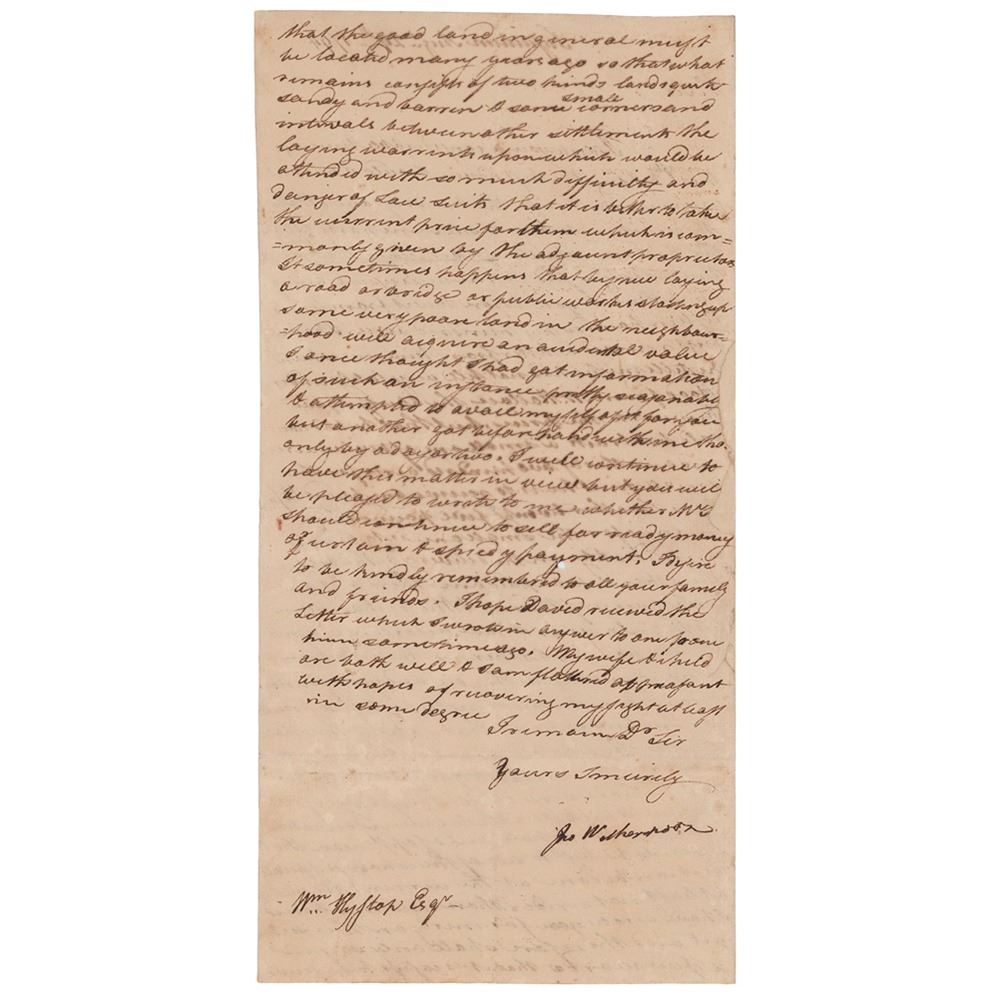 that the good land in general must
be located many years ago so that what
remains consists of two kinds lands quite
sandy and barren & some small corners and
intervals between other settlements the
laying warrents upon which would be
attended with so much difficulty and
danger of Law suits that it is better to take
the current price for them which is com=
=monly given by the adjacent proprietors
It sometimes happens that by new laying
a road or bridge or public works starting up
some very poor land in the neighbour=
=hood will acquire an accidental value
I once thought I had got information
of such an instance pretty seasonable
& attempted to avail myself of it for you
but another got before hand with me tho.
only by a day or two. I will continue to
have this matter in view but you will
be pleased to write to me whether Mr
should continue to sell for ready money
or certain & speedy payment. I desire
to be kindly remembered to all your family
and friends. I hope David received the
Letter which I wrote in answer to one from
him sometime ago. My wife & child
are both well & I am flattered at present
with hopes of recovering my sight at least
in some degree
I remain Dr Sir
Yours Sincerely
Jno Witherspoon
Wm Hysslop Esqr